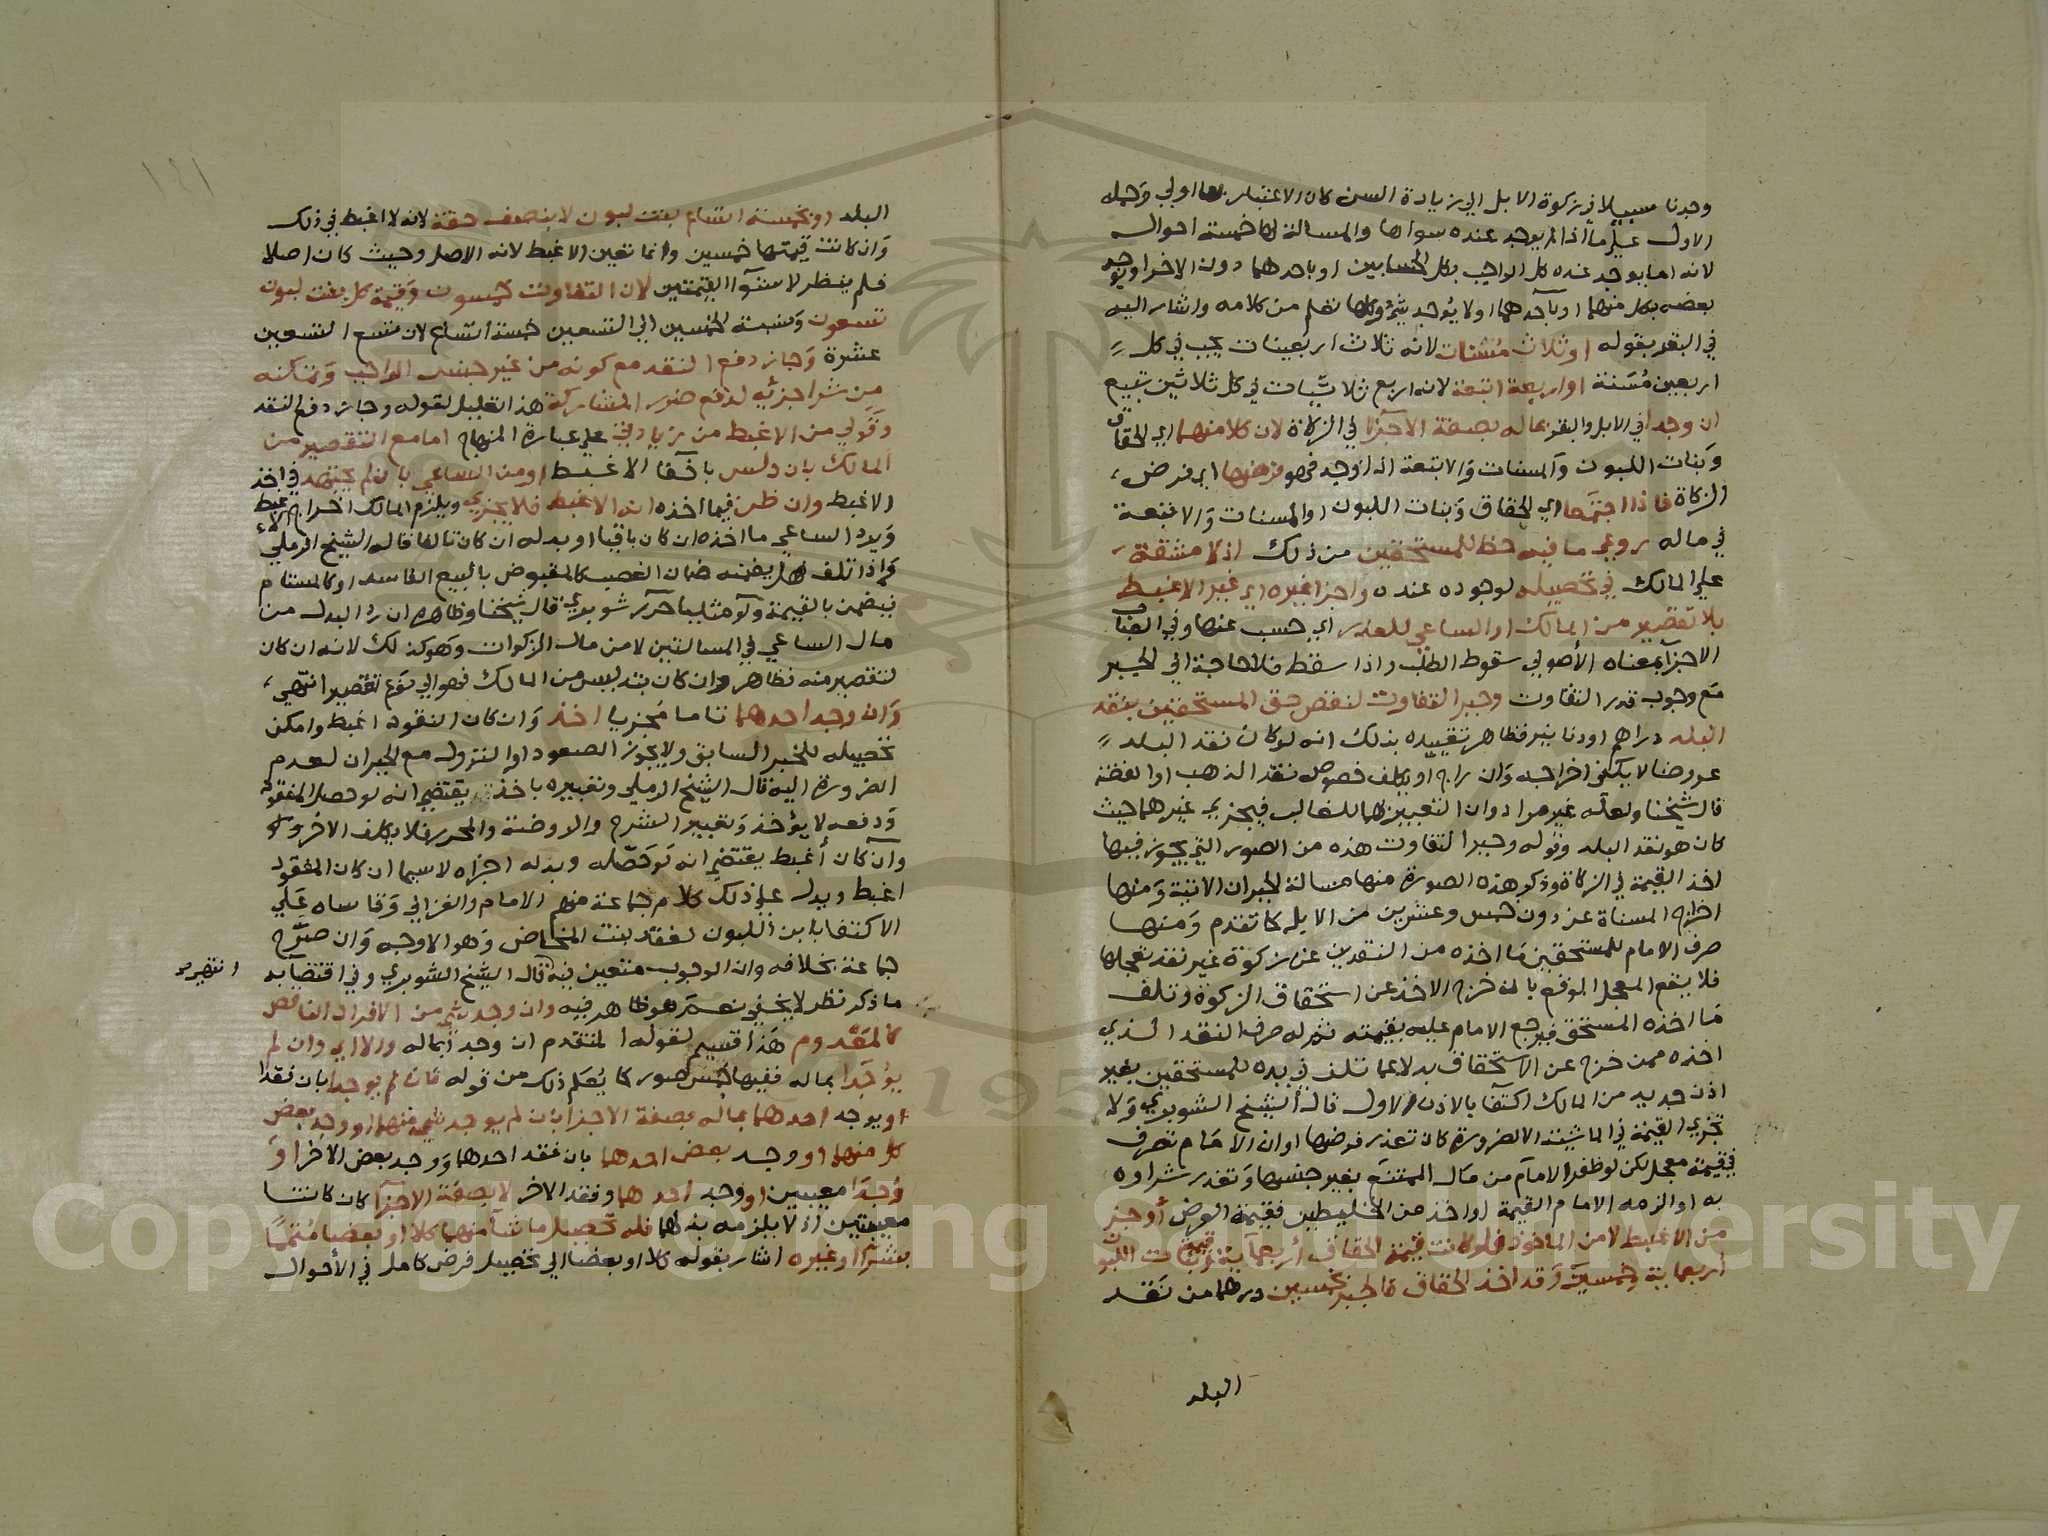 وجدنا سبيلا في زكوة الابل الي زيادة السن كان الاعتبار بها اولي وحمله
الاول علي ما اذا لم يوجد عنده سواها والمسالة لها خمسة احوال
لانه اما يوجد عنده كل الواجب بكل الحسابين او باحدهما دون الاخر او يوجد
بعضه بكل منهما او باحدهما او لا يوجد شي وكلها تعلم من كلامه واشار اليه
في البقر بقوله او ثلاث مسنات لانه ثلاث اربعينات يجب في كل
اربعين مسنة او اربعة اتبعة لانه اربع ثلاثينات في كل ثلاثين تبيع
ان وجدا في الابل والبقر بماله بصفة الاجزا في الزكاة لان كلا منهما اي الحقاق
وبنات اللبون والمسنات والاتبعة اذا وجد فهو فرضها اي فرض
الزكاة فاذا اجتمعا اي الحقاق وبنات اللبون او المسنات والاتبعة
في ماله روعي ما فيه حظ للمستحقين من ذلك اذ لا مشقة
علي المالك في تحصيله لوجوده عنده واجزا غيره اي غير الاغبط
بلا تقصير من المالك او الساعي للعذر اي حسب عنها وفي العباب
الاجزا بمعناه الأصولي سقوط الطلب واذا سقط فلا حاجة الي الجبر
مع وجوب قدر التفاوت وجبر التفاوت لنقص حق المستحقين بنقد
البلد دراهم او دنانير فظاهر تقييده بذلك انه لو كان نقد البلد
عروضا لا يكفي اخراجه وان راج او يكلف خصوص نقد الذهب او الفضة
قال شيخنا ولعله غير مراد وان التعبير بهما للغالب فيجزي غيرهما حيث
كان هو نقد البلد وقوله وجبر التفاوت هذه من الصور التي يجوز فيها
اخذ القيمة في الزكاة وذكر هذه الصورة منها مسالة الجبران الاتية ومنها
اخراج المسناة عن دون خمس وعشرين من الابل كما تقدم ومنها
صرف الامام للمستحقين ما اخذه من النقدين عن زكوة غير نقد تعجلها
فلا يقع المعجل الموقع بان خرج الاخذ عن استحقاق الزكوة وتلف
ما اخذه المستحق فيرجع الامام عليه بقيمته ثم له صرف النقد الذي
اخذه ممن خرج عن الاستحقاق بدلا عما تلف في يده للمستحقين بغير
اذن جديد من المالك اكتفا بالاذن الاول قال الشيخ الشوبري ولا
تجزي القيمة في الماشية الا لضرورة كان تعذر فرضها او ان الامام تصرف
في قيمة معجل لكن لو ظفر الامام من مال الممتنع بغير جنسها وتعذر شراوه
به او الزمه الامام القيمة او اخذ من الخليطين فقيمة العرض أو جزء
من الاغبط لا من الماخوذ فلو كانت قيمة الحقاق أربعمائة وقيمة بنات اللبون
اربعماية وخمسين وقد اخذ الحقاق فالجبر بخمسين درهما من نقد
البلد
١٤١
البلد او بخمسة اتساع بنت لبون لا بنصف حقة لانه لا اغبط في ذلك
وان كانت قيمتها خمسين وانما تعين الاغبط لانه الاصل وحيث كان اصلا
فلم ينظر لاستوا القيمتين لان التفاوت خمسون وقيمة كل بنت لبون
تسعون ونسبة الخمسين الي التسعين خمسة اتساع لان تسع التسعين
عشرة وجاز دفع النقد مع كونه من غير جنس الواجب وتمكنه
من شرا جزئه لدفع ضرر المشاركة هذا تعليل لقوله وجاز دفع النقد
وقولي من الاغبط من زيادتي علي عبارة المنهاج اما مع التقصير من
المالك بان دلس باخفا الاغبط او من الساعي بان لم يجتهد في اخذ
الاغبط وان ظن فيما اخذه انه الاغبط فلا يجزي ويلزم المالك اخراج الاغبط
ويرد الساعي ما اخذه ان كان باقيا او بدله ان كان تالفا قاله الشيخ الرملي
واذا تلف هل يضمنه ضمان الغصب كالمقبوض بالبيع الفاسد او كالمستام
فيضمن بالقيمة ولو مثليا حرر شوبري قال شيخنا وظاهره ان رد البدل من
مال الساعي في المسالتين لا من مال الزكوات وهو كذلك لانه ان كان
لتقصير منه فظاهر وان كان بتدليس من المالك فهو الي نوع تقصير انتهي
وان وجد احدهما تاما مجزيا اخذ وان كان المفقود اغبط وامكن
تحصيله للخبر السابق ولا يجوز الصعود او النزول مع الجبران لعدم
الضرورة اليه قال الشيخ الرملي وتعبيره باخذ يقتضي انه لو حصل المفقود
ودفعه لا يؤخذ وتعبير الشرح والروضة والمحرر فلا يكلف الاخر
وان كان أغبط يقتضي انه لو حصله وبذله اجزاه لا سيما ان كان المفقود
اغبط ويدل علي ذلك كلام جماعة منهم الامام والغزالي وقاساه علي
الاكتفا بابن اللبون لفقد بنت المخاض وهو الاوجه وان صرح
جماعة بخلافه وان الوجوب متعين فيه قال الشيخ الشوبري وفي اقتضايه
ما ذكر نظر لا يخفي نعم هو ظاهر فيه وان وجد شي من الافراد الناقص
كالمعدوم هذا قسيم لقوله المتقدم ان وجدا بماله والا اي وان لم
يوجدا بماله ففيها خمس صور كما يعلم ذلك من قوله فان لم يوجدا بان فقدا
او يوجد احدهما بماله بصفة الاجزا بان لم يوجد شي منهما او وجد بعض
كل منهما او وجد بعض احدهما بان فقد احدهما ووجد بعض الاخر او
وجدا معيبين او وجد احدهما وفقد الاخر لا بصفة الاجزا كان كانتا
معيبتين اذ لا يلزمه بذلهما فله تحصيل ما شا منهما كلا او بعضا متمما
بشرا او غيره اشار بقوله كلا او بعضا الي تحصيل فرض كامل في الأحوال